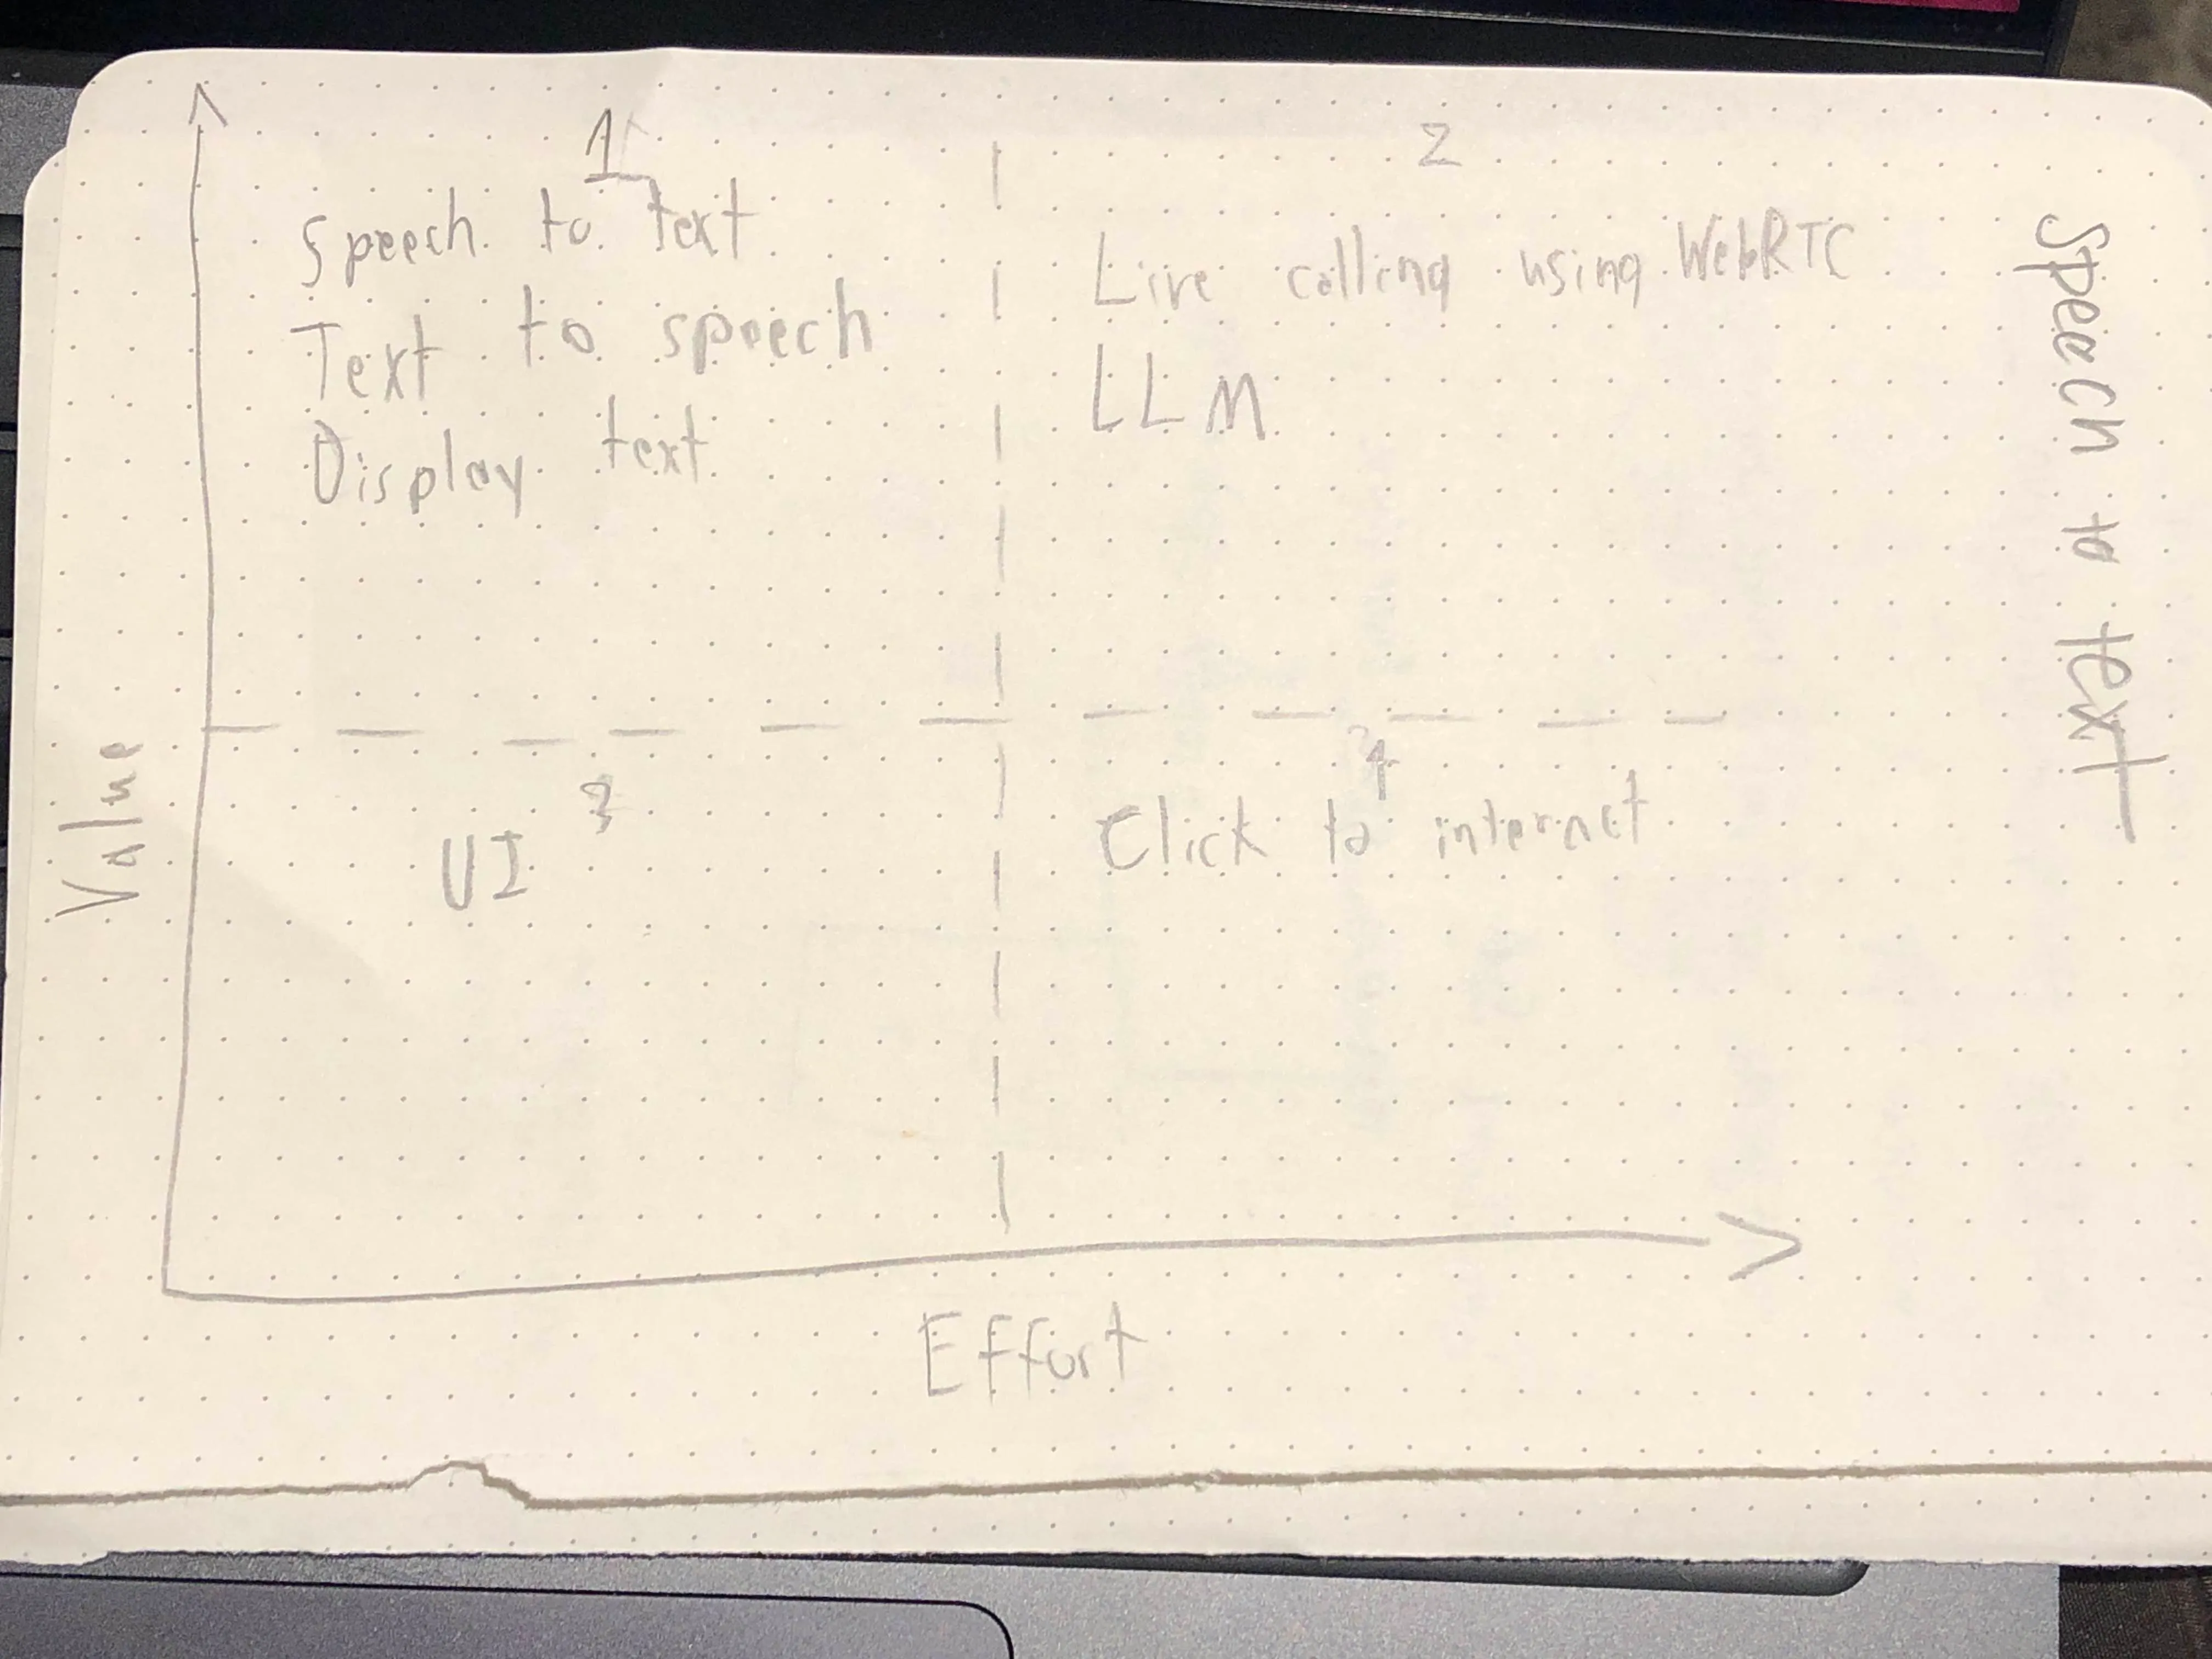 1
Speech to text
Text to speech
Display text
2
Live calling using WebRTC
LLM
3
UI
4
Click to internet
Value
Effort
Speech to text